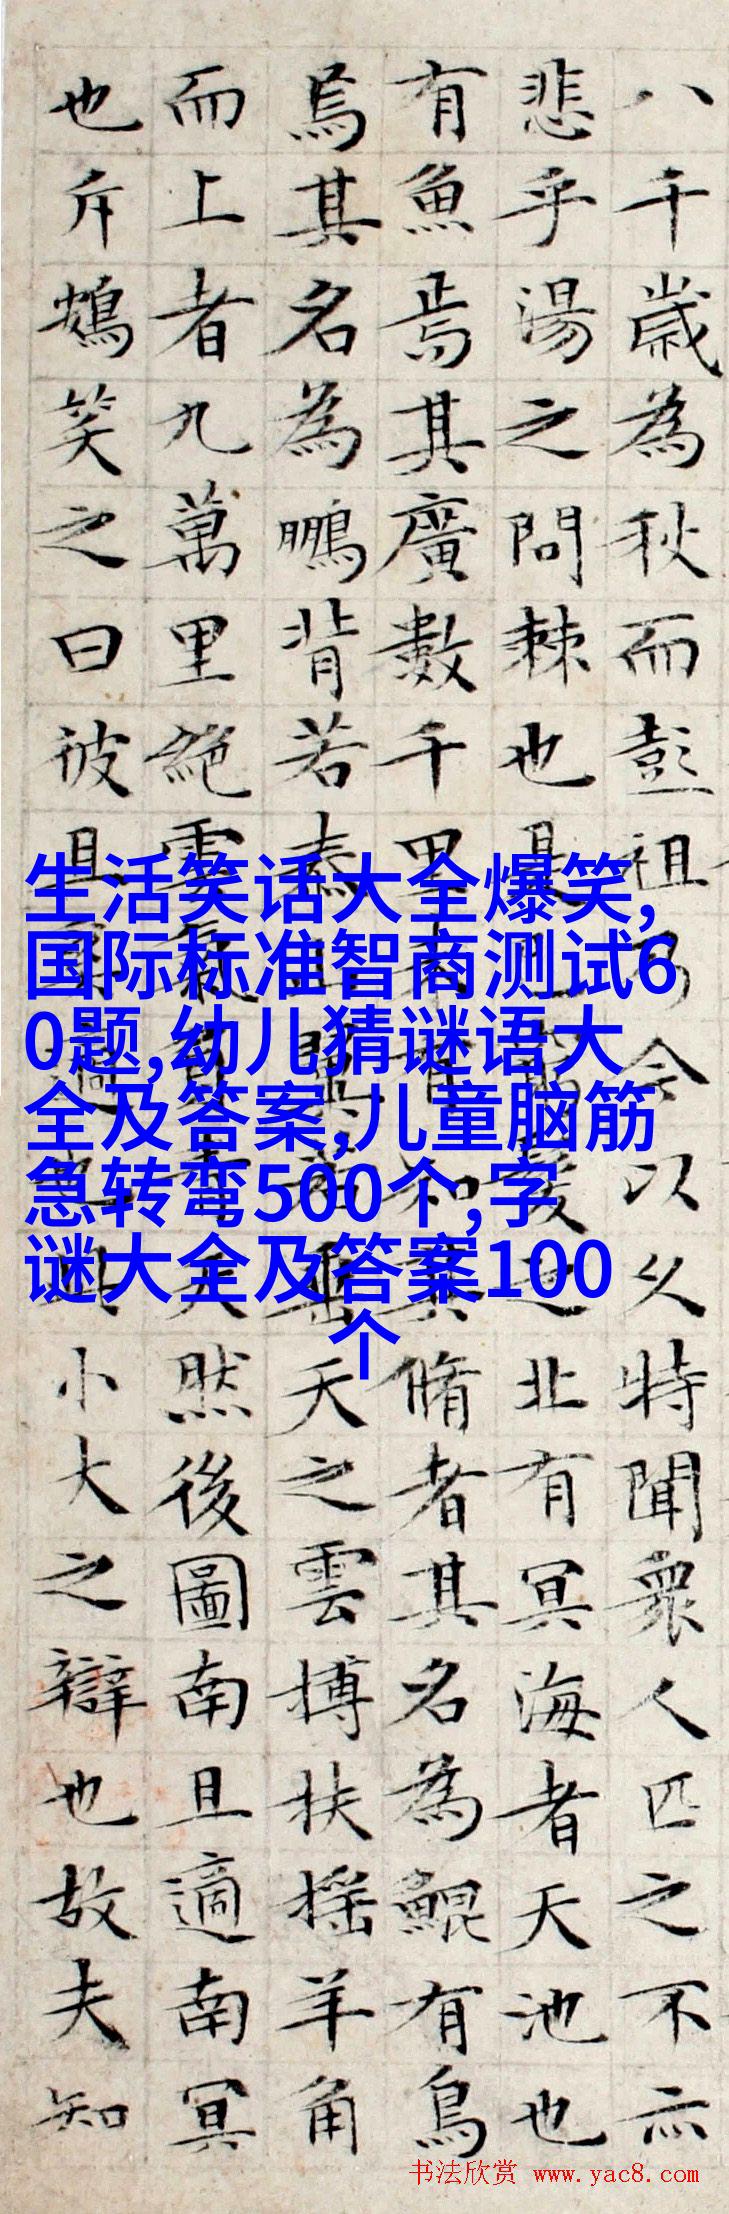 八千歲為秋而彭祖乃今以久特聞衆人匹之不亦
悲乎湯之問棘也是已窮髮之北有冥海者天池也
有魚焉其廣數千里未有知其脩者其名為鯤有鳥
焉其名為鵬背若泰山翼若垂天之雲搏扶搖羊角
而上者九萬里絕雲氣負青天然後圖南且適南冥
也斥鴳笑之曰彼且奚適也此小大之辯也故夫知
生活笑话大全爆笑,
国际标准智商测试6
0题,幼儿猜谜语大
全及答案,儿童脑筋
急转弯500个,字
谜大全及答案100
个
书法欣赏 www.yac8.com